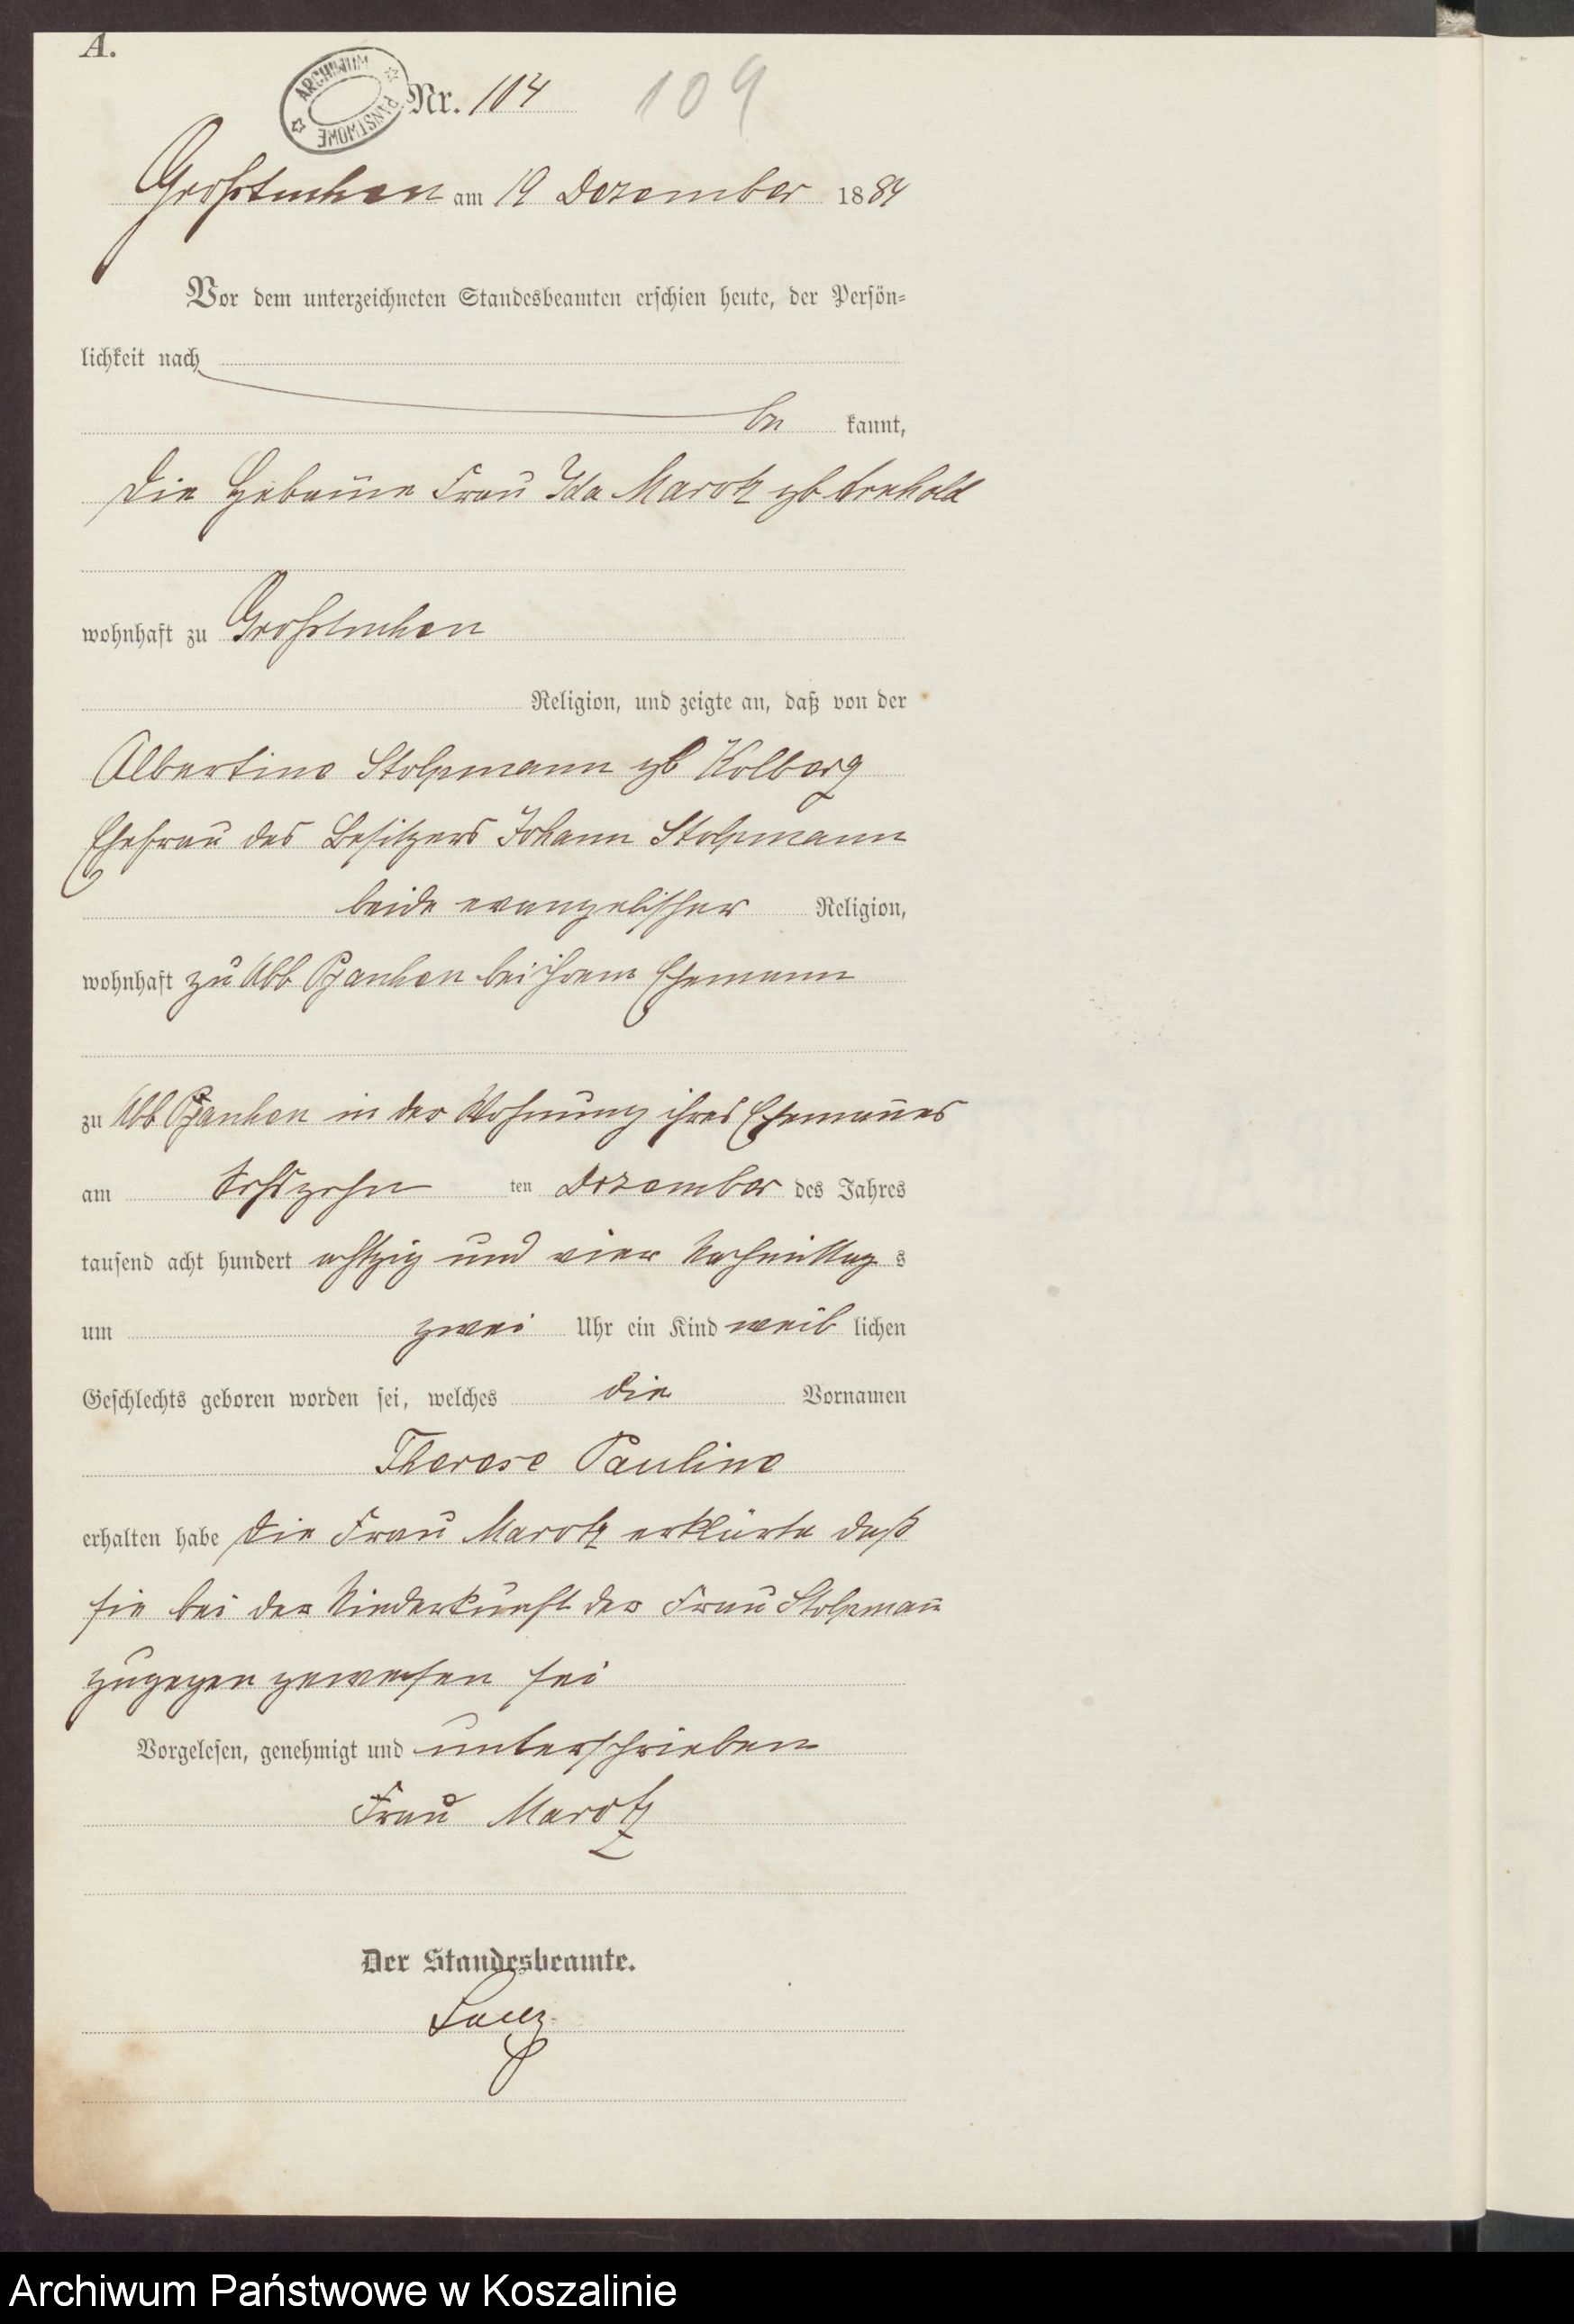 A.
ARCHIWUM PAŃSTWOWE
Nr. 104 109
Großtuchen am 19 Dezember 1884
Vor dem unterzeichneten Standesbeamten erschien heute, der Persön-
lichkeit nach
be kannt,
die Hebamme Frau Ida Marotz gb
wohnhaft zu Großtuchen
Religion, und zeigte an, daß von der
Albertine Stolpmann gb Kolberg
Ehefrau des Besitzers Johann Stolpmann
beide evangelischer Religion,
wohnhaft zu Abb bei ihrem Ehemann
zu Abb in der Wohnung ihres Ehemannes
am sechszehn ten Dezember des Jahres
tausend acht hundert achtzig und vier Nachmittag s
um zwei Uhr ein Kind weib lichen
Geschlechts geboren worden sei, welches die Vornamen
Therese Pauline
erhalten habe die Frau Marotz erklärte daß
sie bei der Niederkunft der Frau Stolpmañ
zugegen gewesen sei
Vorgelesen, genehmigt und unterschrieben
Frau Marotz
Der Standesbeamte.
Archiwum Państwowe w Koszalinie